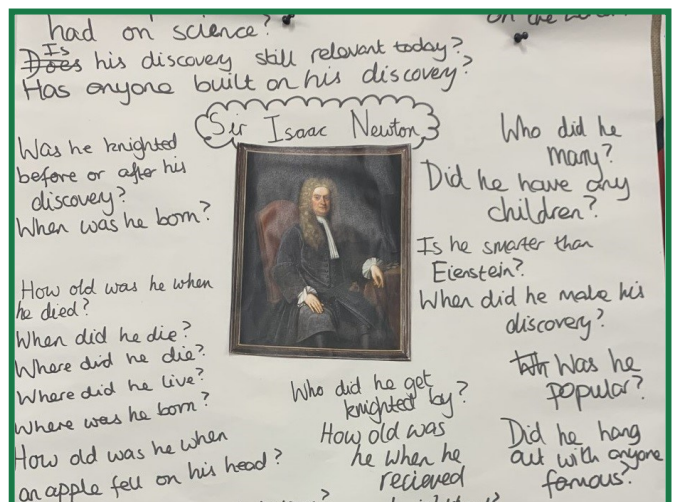 had on science?
on the
Is
Does his discovery still relevant today?
Has anyone built on his discovery?
Sir Isaac Newton
Was he knighted
before or after his
discovery?
When was he born?
How old was he when
he died?
When did he die?
Where did he die?
Where did he live?
Where was he born?
How old was he when
an apple fell on his head?
Who did he
marry?
Did he have any
children?
Is he smarter than
Eienstein?
When did he make his
discovery?
Was he
popular?
Who did he get
knighted by?
How old was
he when he
recieved
Did he hang
out with anyone
famous?